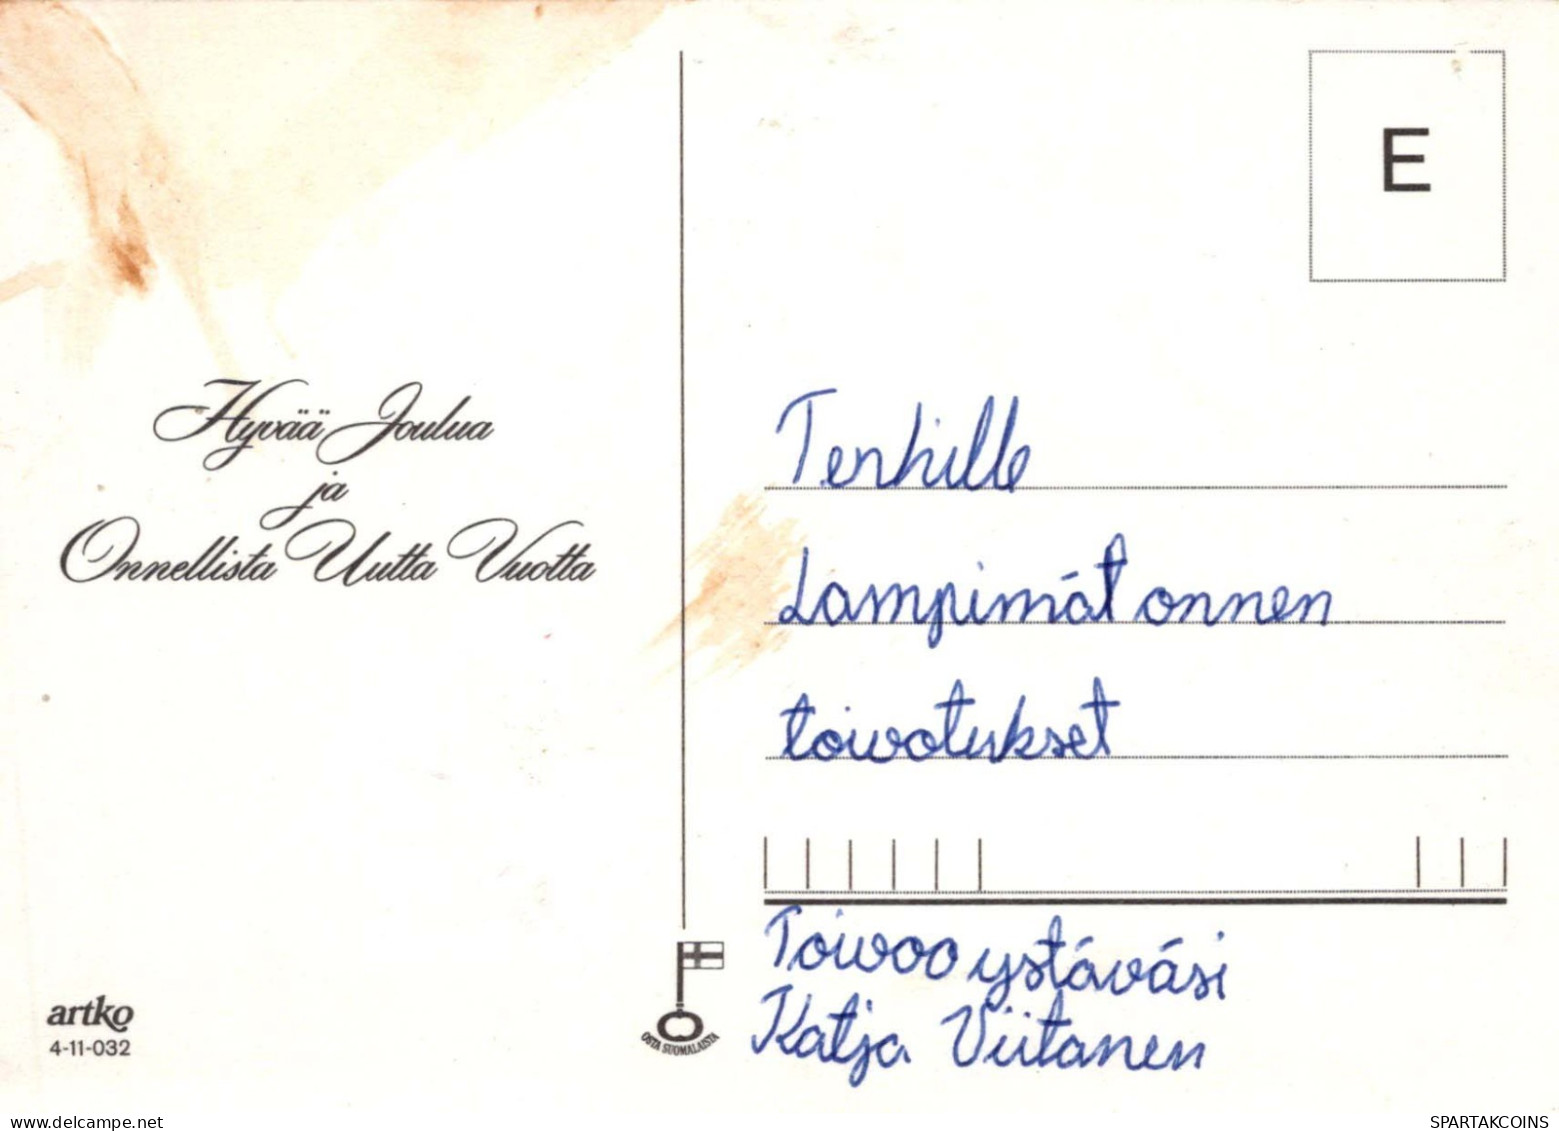 Hyvää Joulua
ja
Onnellista Uutta Vuotta
E
Terhille
Lämpimät onnen
toivotukset
Toivoo ystäväsi
Katja Viitanen
artko
4-11-032
OSTA SUOMALAISTA
delcampe.net
SPARTAKCOINS